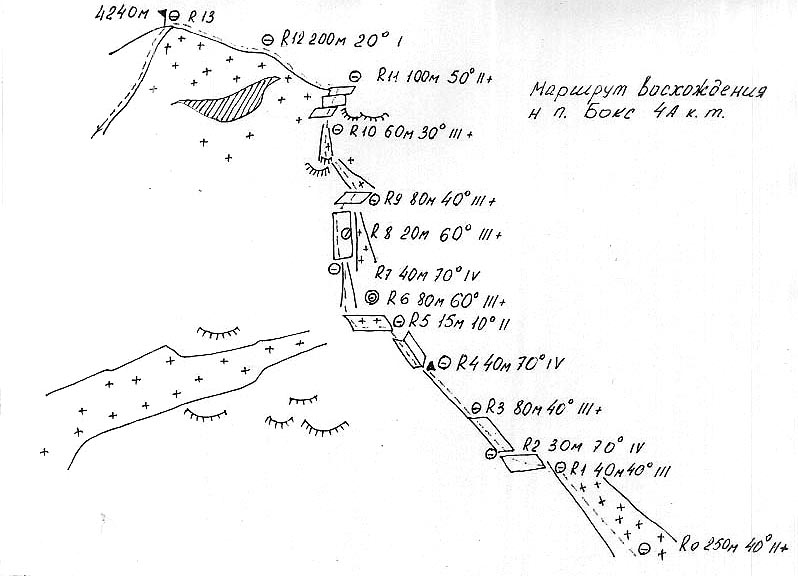 4240м R13
R12 200м 20° I
R11 100м 50° II+
Маршрут восхождения
н п. Бокс 4А к.т.
R10 60м 30° III+
R9 80м 40° III+
R8 20м 60° III+
R7 40м 70° IV
R6 80м 60° III+
R5 15м 10° II
R4 40м 70° IV
R3 80м 40° III+
R2 30м 70° IV
R1 40м 40° III
R0 250м 40° II+